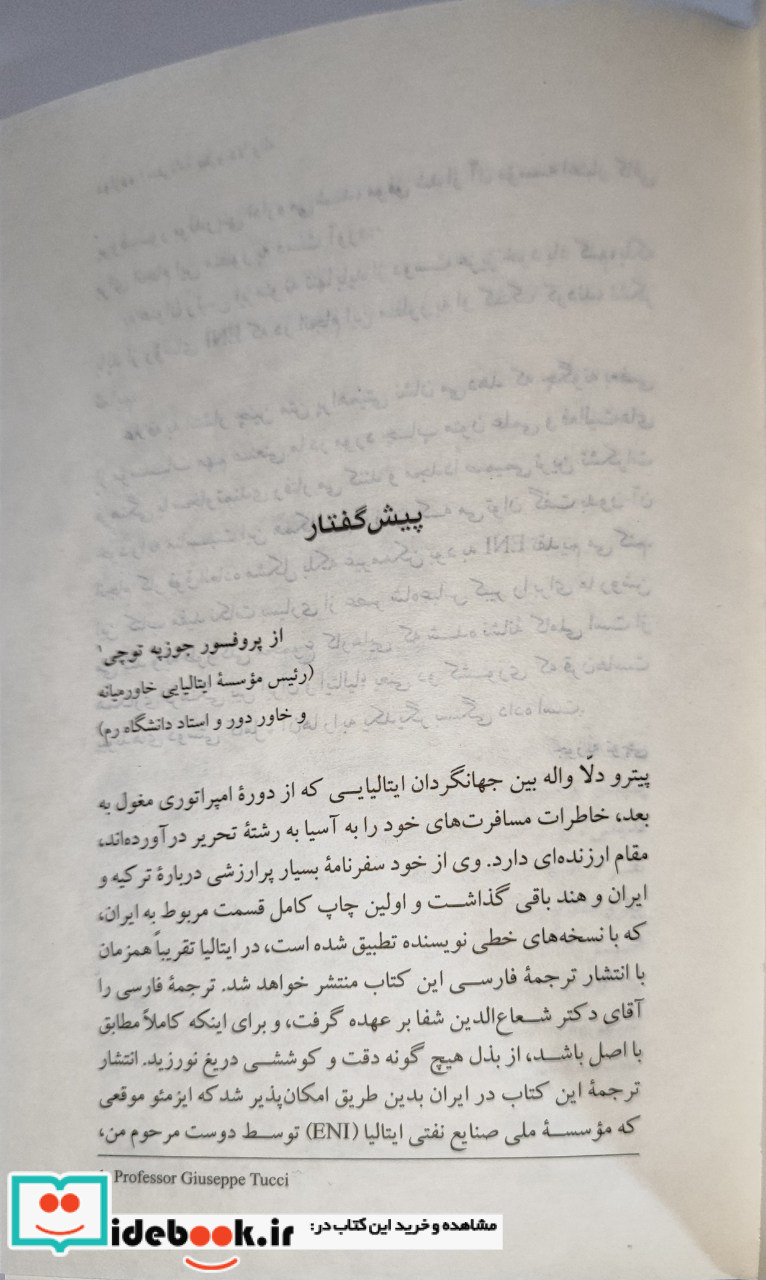 پیش‌گفتار
از پروفسور جوزپه توچی¹
(رئیس مؤسسهٔ ایتالیایی خاورمیانه
و خاور دور و استاد دانشگاه رم)
پیترو دلّا واله بین جهانگردان ایتالیایـی که از دورهٔ امپراتوری مغول به
بعد، خاطرات مسافرت‌های خود را به آسیا به رشتهٔ تحریر درآورده‌اند،
مقام ارزنده‌ای دارد. وی از خود سفرنامهٔ بسیار پرارزشی دربارهٔ ترکیه و
ایران و هند باقی گذاشت و اولین چاپ کامل قسمت مربوط به ایران،
که با نسخه‌های خطی نویسنده تطبیق شده است، در ایتالیا تقریباً همزمان
با انتشار ترجمهٔ فارسی این کتاب منتشر خواهد شد. ترجمهٔ فارسی را
آقای دکتر شعاع‌الدین شفا بر عهده گرفت، و برای اینکه کاملاً مطابق
با اصل باشد، از بذل هیچ گونه دقت و کوششی دریغ نورزید. انتشار
ترجمهٔ این کتاب در ایران بدین طریق امکان‌پذیر شد که ایزمئو موقعی
که مؤسسهٔ ملی صنایع نفتی ایتالیا (ENI) توسط دوست مرحوم من،
Professor Giuseppe Tucci
مشاهده و خرید این کتاب در:
idebook.ir